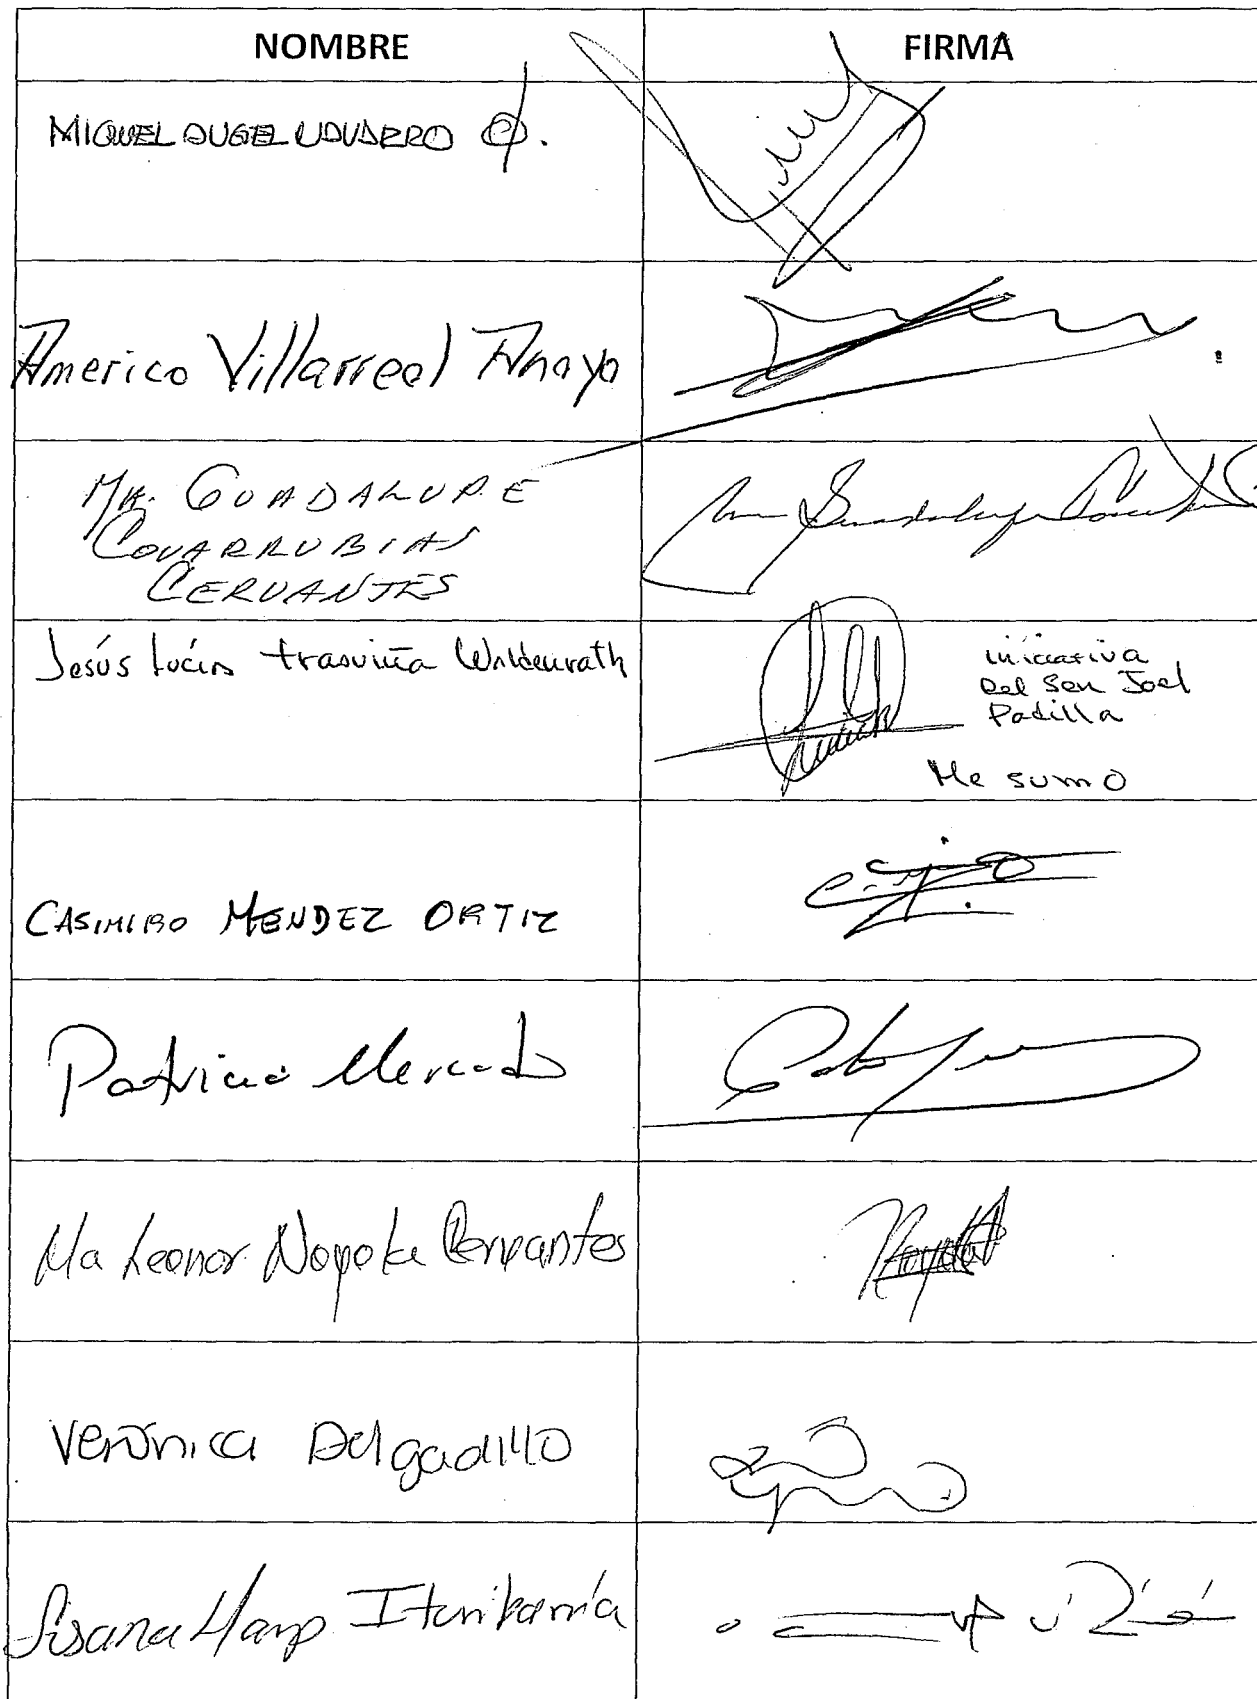 NOMBRE
FIRMA
MIGUEL ANGEL NAVARRO Q.
Americo Villarreal Anaya
MA. GUADALUPE
COVARRUBIAS
CERVANTES
Jesús Lucía trasviña Waldenrath
iniciativa
Del Sen Joel
Padilla
Me sumo
CASIMIRO MENDEZ ORTIZ
Patricia Mercado
Ma Leonor Noyola Cervantes
Verónica Delgadillo
Susana Harp Iturribarría